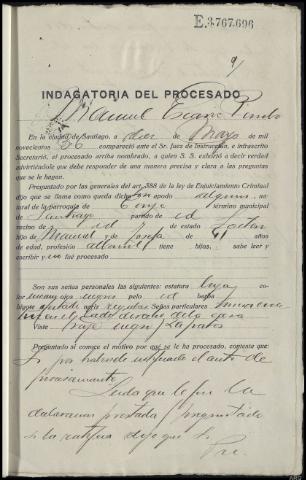 E.3.767.696
9/
INDAGATORIA DEL PROCESADO
Manuel
En la ciudad de Santiago, a diez de Mayo de mil
novecientos 36 compareció ante el Sr. Juez de Instrucción, e infrascrito
Secretario, el procesado arriba nombrado, a quien S. S. exhortó a decir verdad
advirtiéndole que debe responder de una manera precisa y clara a las preguntas
que se le hagan.
Preguntado por las generales del art. 388 de la ley de Enjuiciamiento Criminal
dijo que se llama como queda dicho sin apodo alguno, na-
tural de la parroquia de Conjo término municipal
de Santiago partido de id
vecino de id de estado soltero
hijo de Manuel y de Josefa de 41 años
de edad, profesión albañil tiene hijos; sabe leer y
escribir y no fué procesado
Son sus señas personales las siguientes: estatura baja co-
lor negro pelo id barba
afeitada regular Señas particulares
lado derecho de la cara
Viste traje negro zapatos
Preguntado si conoce el motivo por que se le ha procesado, contesta que:
Sí por habérsele notificado el auto de
procesamiento
Leída que le fue la
declaración prestada preguntado
si la ratifica dijo que sí
Pre.